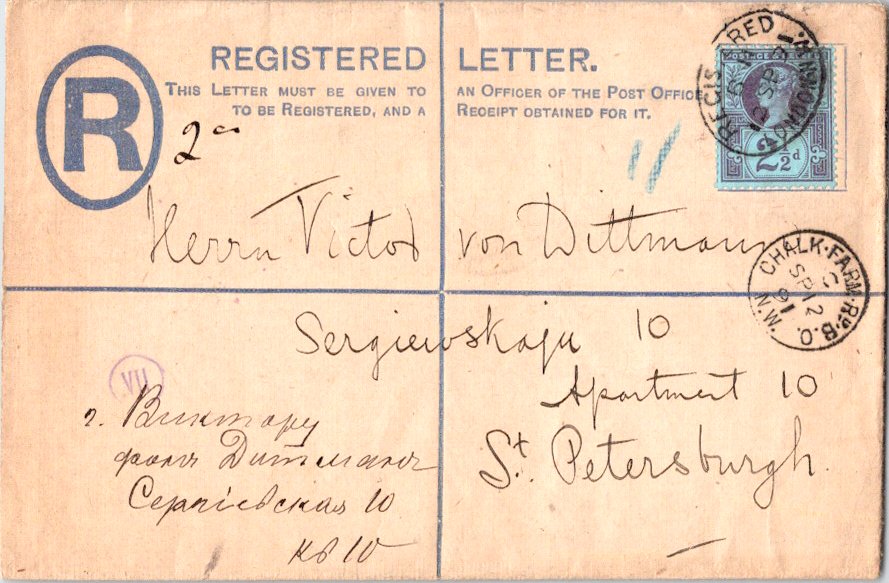 R
REGISTERED LETTER.
THIS LETTER MUST BE GIVEN TO AN OFFICER OF THE POST OFFICE
TO BE REGISTERED, AND A RECEIPT OBTAINED FOR IT.
POSTAGE &
2½d
REGISTERED
LONDON
SP
CHALK·FARM·RD. B.O.
N.W.
C
SP 12
91
Herrn Victor von Dittmann
Sergiewskaja 10
Apartment 10
St. Petersburgh.
VII
г. Виктору
фонъ Дитманъ
Сергіевская 10
кв 10